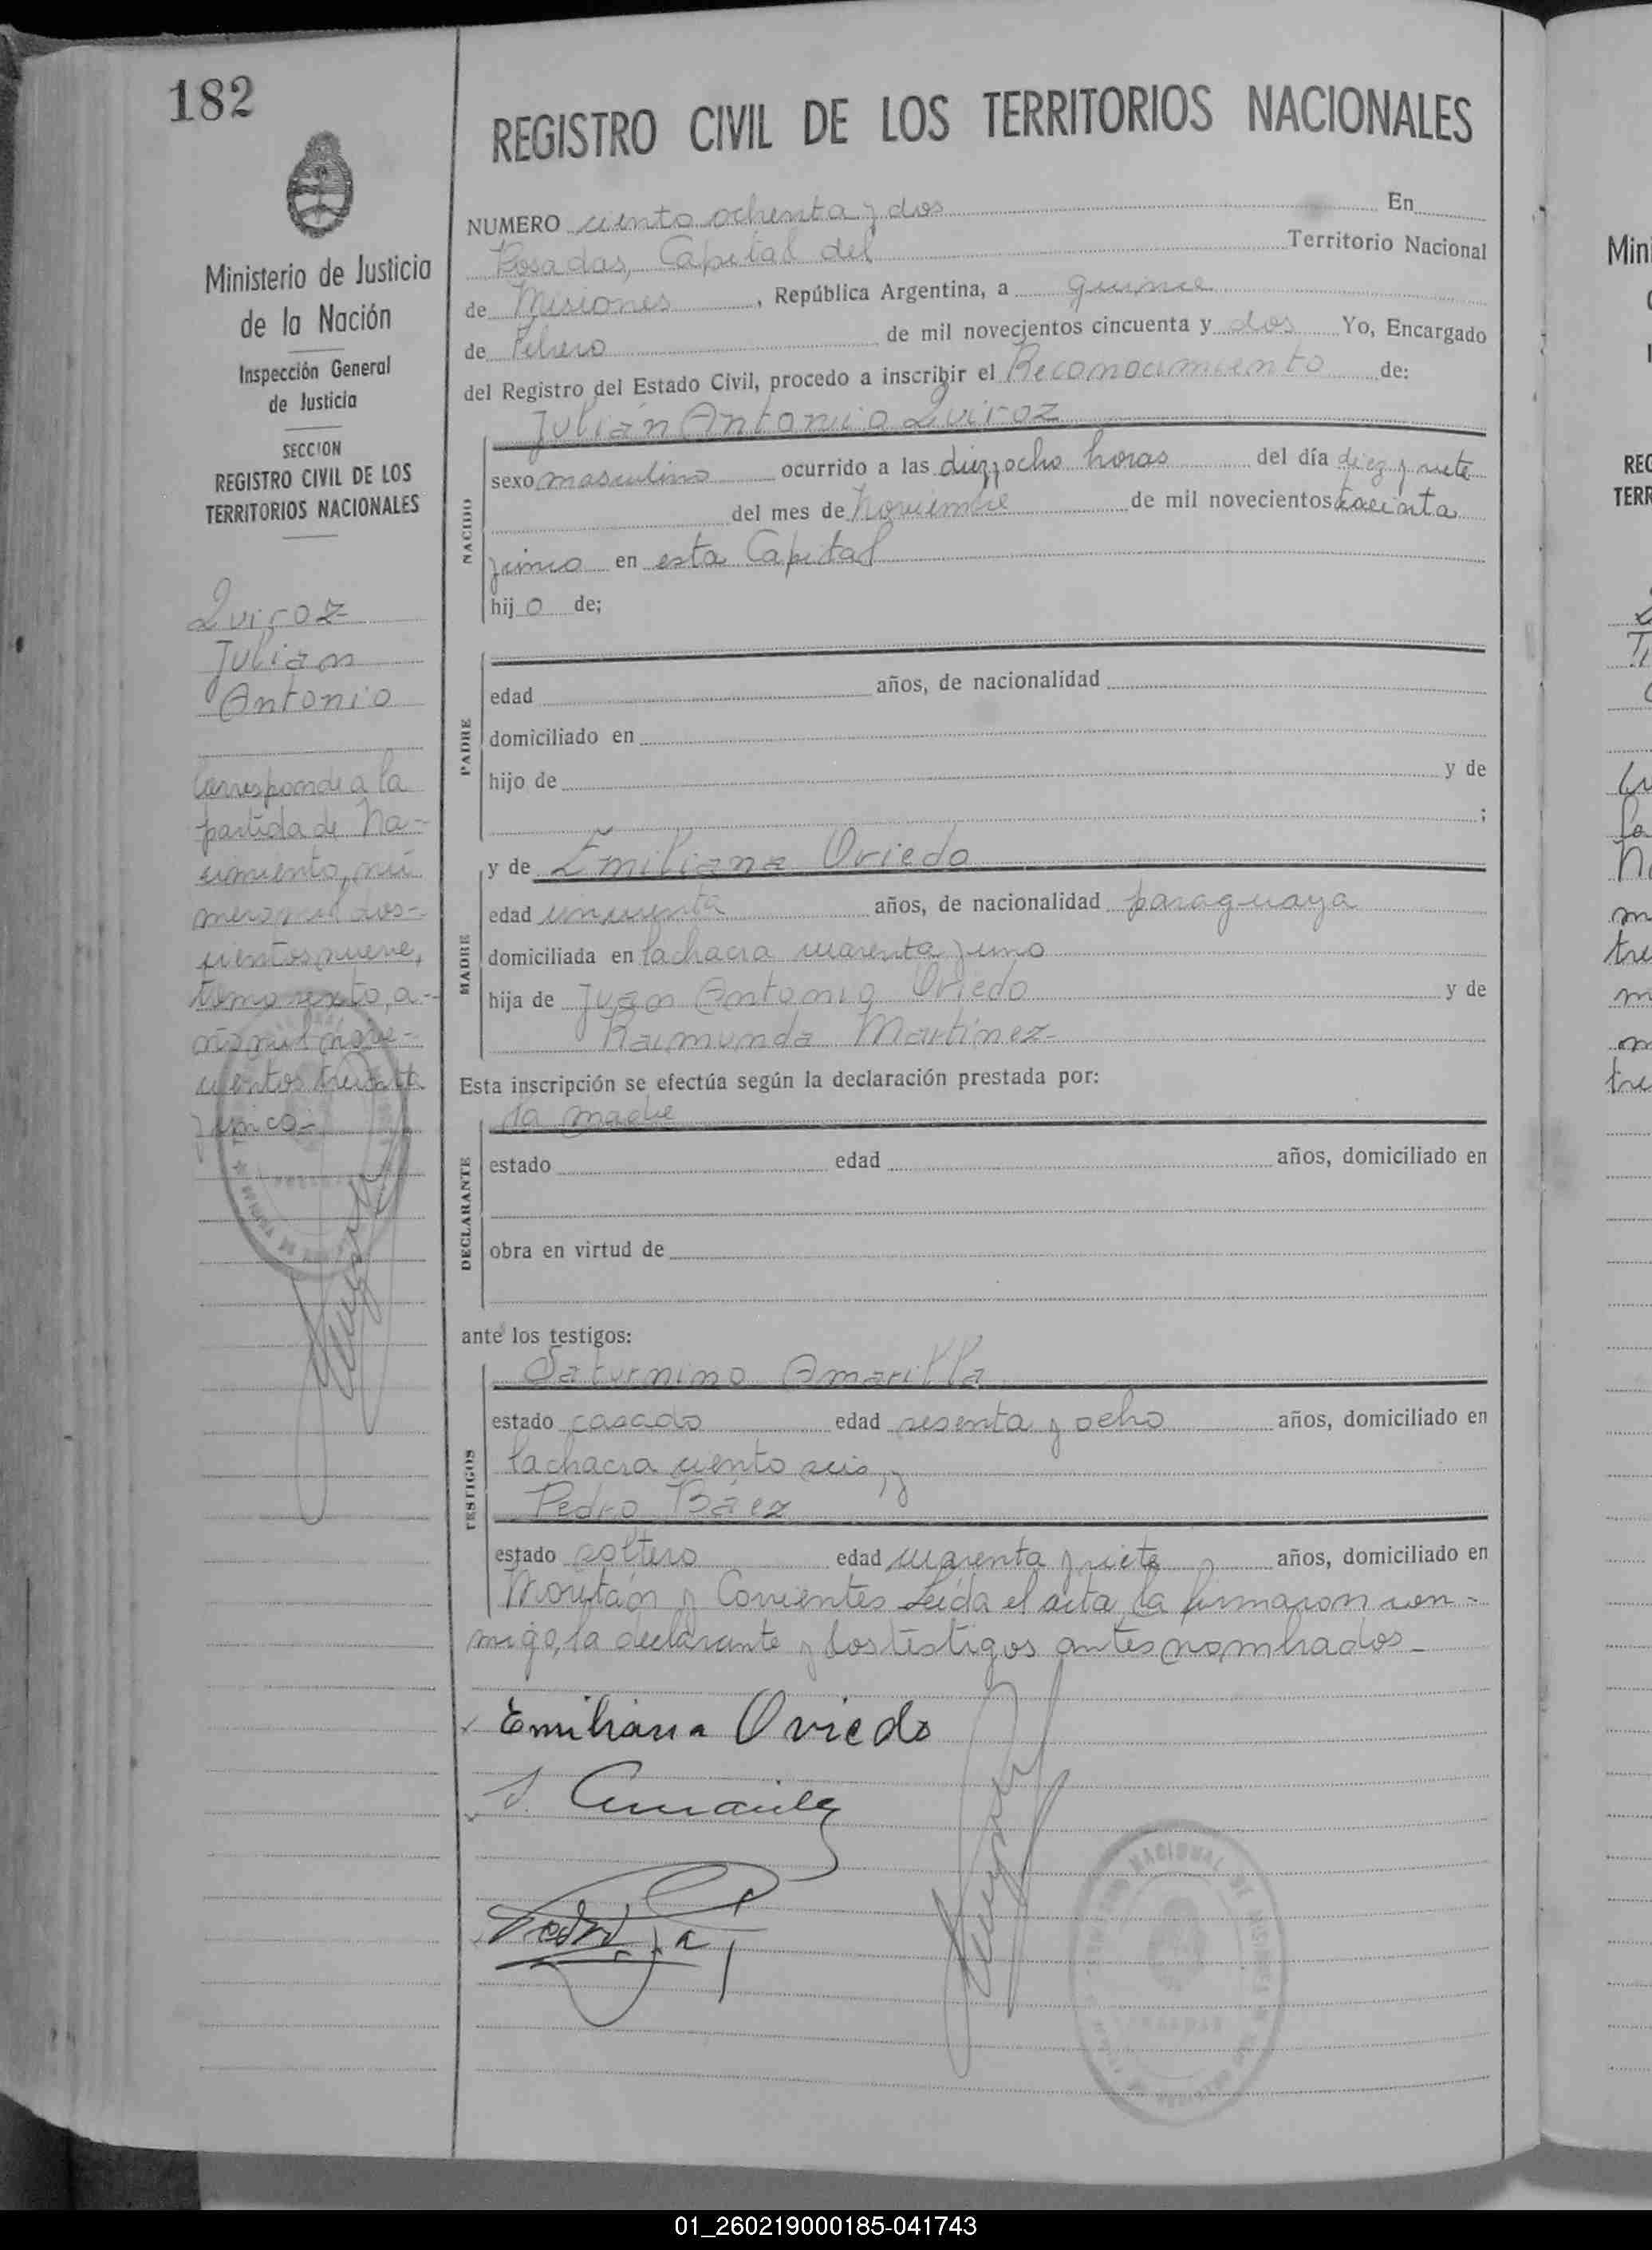 182
Ministerio de Justicia
de la Nación
Inspección General
de Justicia
SECCION
REGISTRO CIVIL DE LOS
TERRITORIOS NACIONALES
Quiroz
Julian
Antonio
Corresponde a la
partida de Na-
cimiento, nú
mero mil dos-
cientos nueve,
tomo sexto, a-
ño mil nove-
cientos treinta
y unico.-
REGISTRO CIVIL DE LOS TERRITORIOS NACIONALES
NUMERO ciento ochenta y dos En
Posadas, Capital del Territorio Nacional
de Misiones, República Argentina, a quince
de Febrero de mil novecientos cincuenta y dos Yo, Encargado
del Registro del Estado Civil, procedo a inscribir el Reconocimiento de:
Julián Antonio Quiroz
NACIDO
sexo masculino ocurrido a las diez y ocho horas del día diez y siete
del mes de Noviembre de mil novecientos treinta
y unico en esta Capital
hijo de;
PADRE
edad años, de nacionalidad
domiciliado en
hijo de y de
;
y de Emiliana Oviedo
MADRE
edad cincuenta años, de nacionalidad paraguaya
domiciliada en la chacra cuarenta y uno
hija de Juan Antonio Oviedo y de
Raimunda Martínez
Esta inscripción se efectúa según la declaración prestada por:
la madre
DECLARANTE
estado edad años, domiciliado en
obra en virtud de
ante los testigos:
Saturnino Amarilla
TESTIGOS
estado casado edad sesenta y ocho años, domiciliado en
la chacra ciento seis, y
Pedro Báez
estado soltero edad cuarenta y siete años, domiciliado en
y Corrientes Leída el acta, la firmaron con-
migo, la declarante y los testigos antes nombrados.-
Emiliana Oviedo
S. Amarilla
Pedro
NACIONAL DE MISIONES
01_260219000185-041743